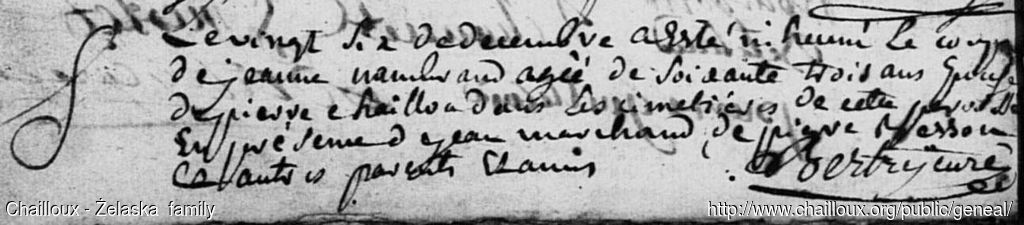 Le vingt six de decembre a esté inhumé le corps
de jeanne nambrand agée de soixante trois ans Epouse
de pierre chaillou dans les cimetières de cette paroisse
En présence de jean marchand, de pierre
Et autres parents Et amis
Chailloux - Żelaska family
http://www.chailloux.org/public/geneal/